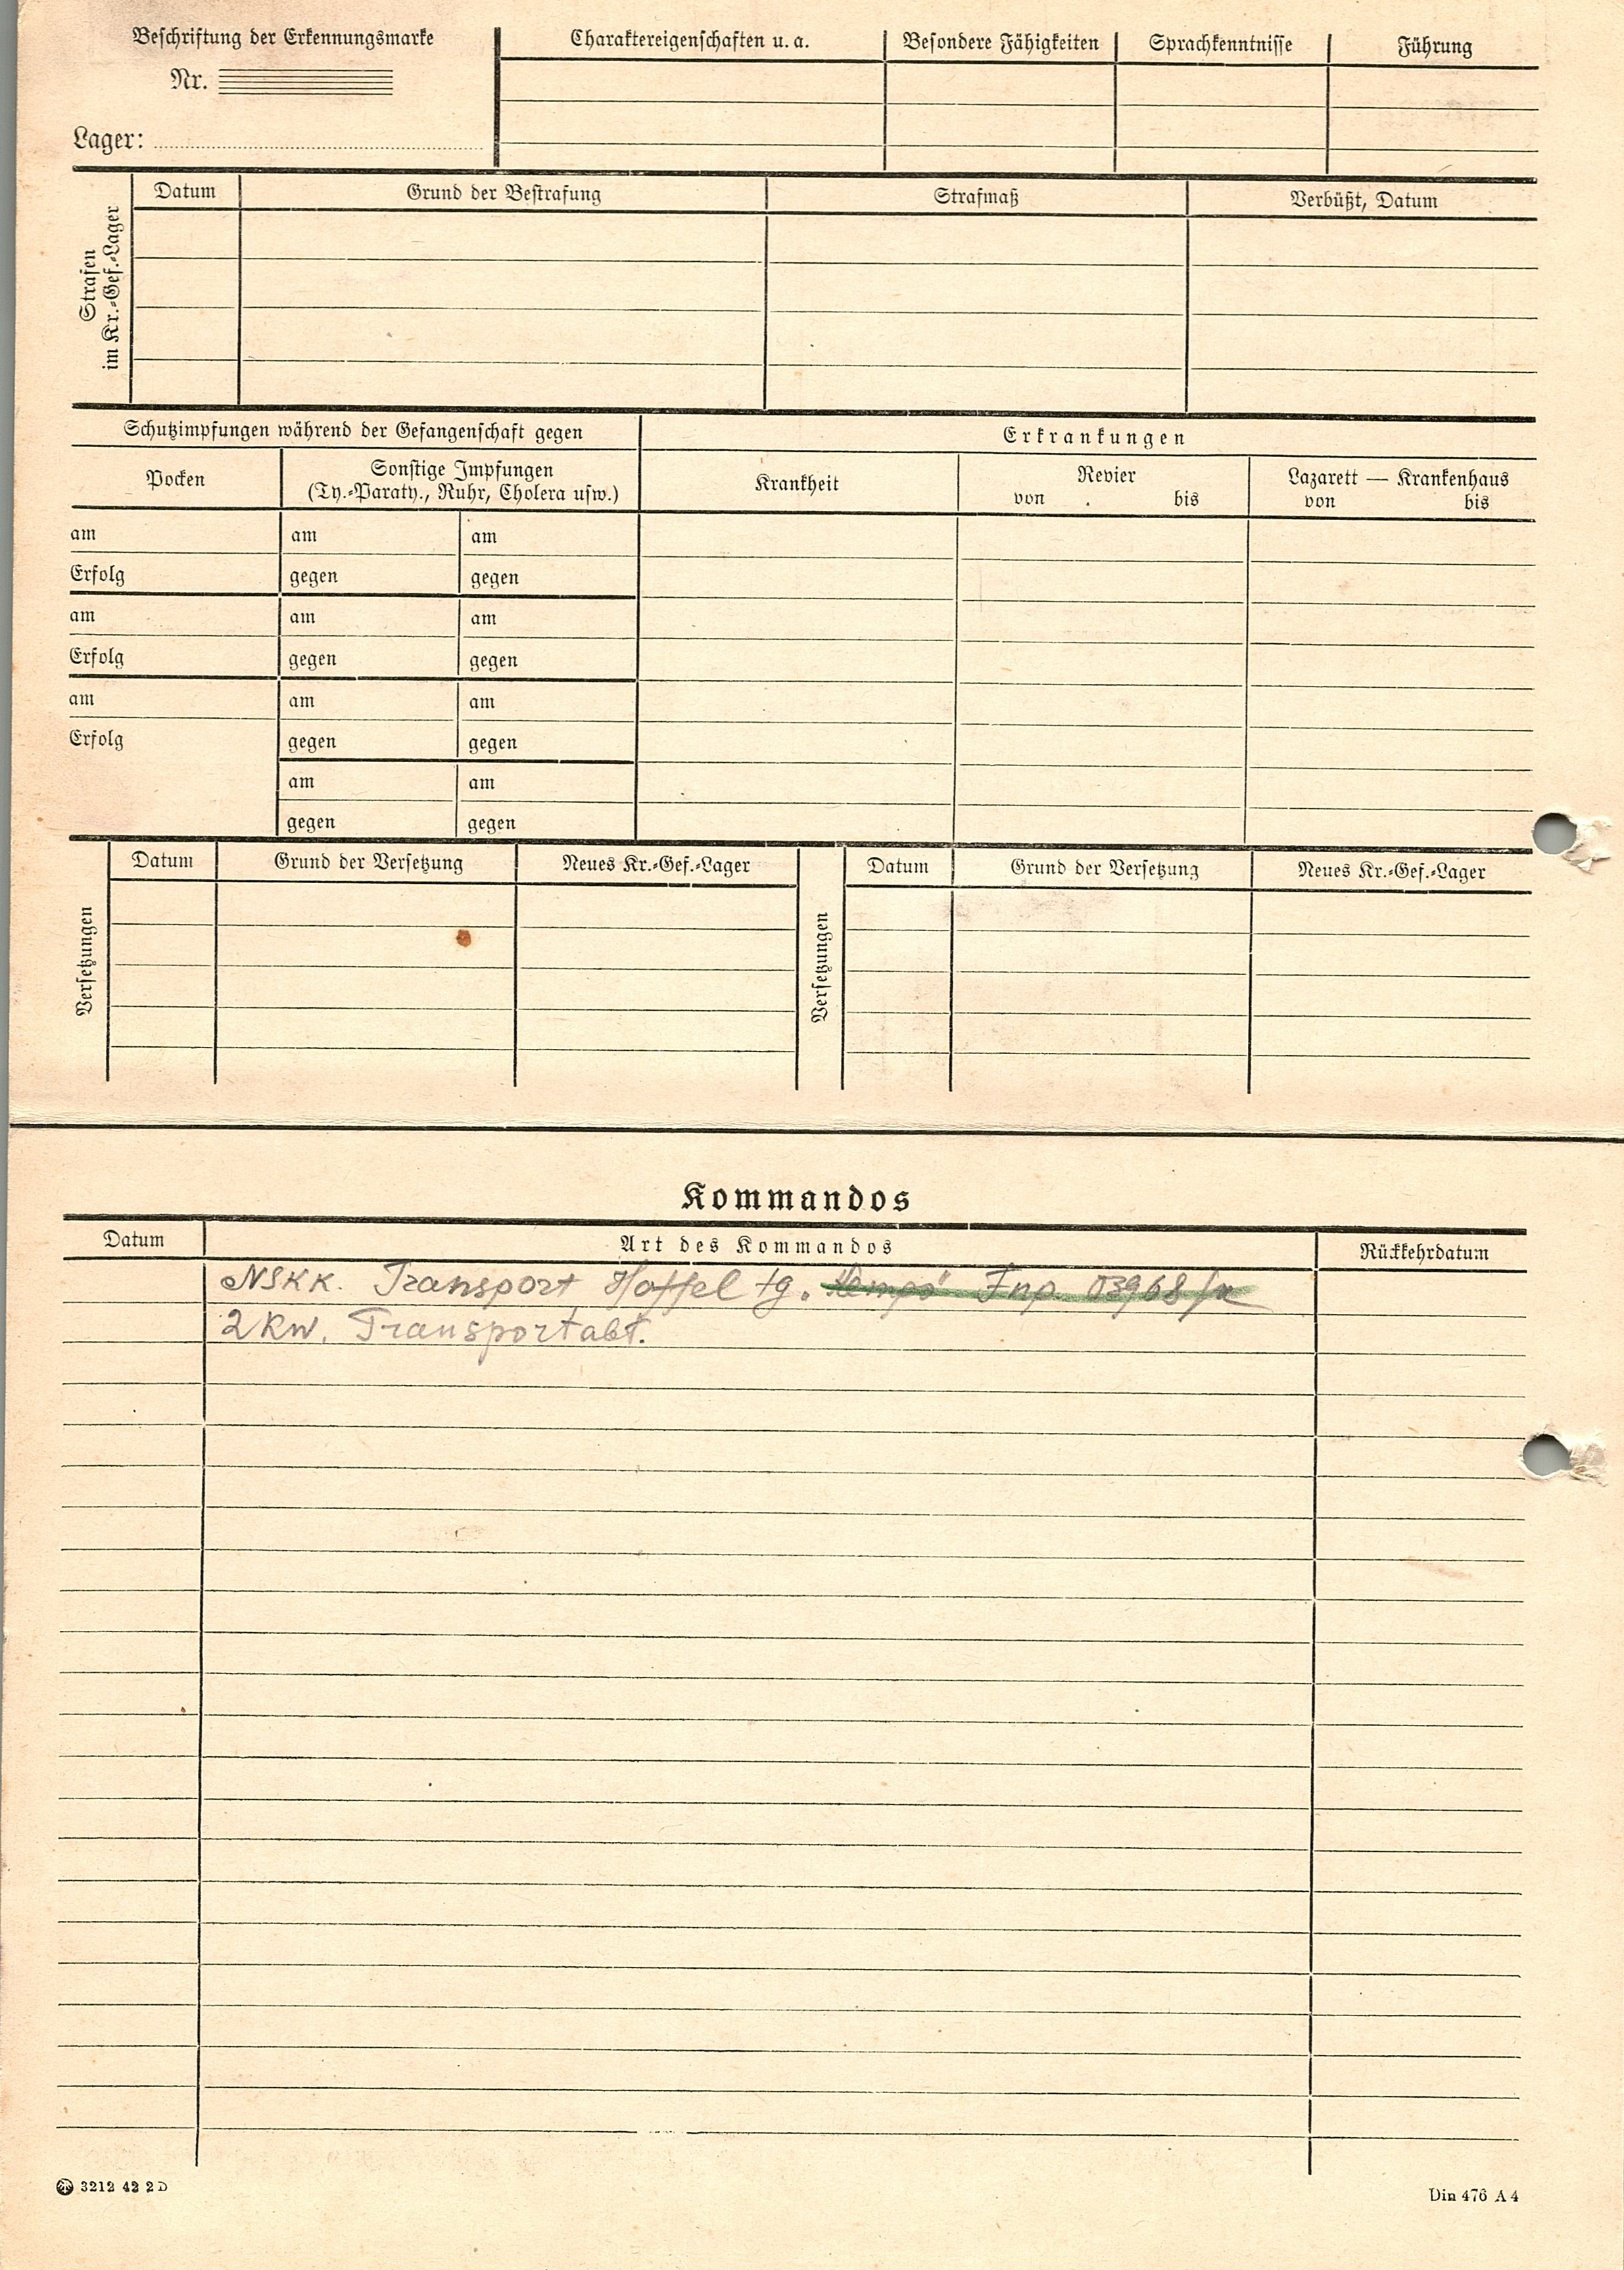 Beschriftung der Erkennungsmarke
Nr.
Lager:
Charaktereigenschaften u. a.
Besondere Fähigkeiten
Sprachkenntnisse
Führung
Strafen
im Kr.-Gef.-Lager
Datum
Grund der Bestrafung
Strafmaß
Verbüßt, Datum
Schutzimpfungen während der Gefangenschaft gegen
Erkrankungen
Pocken
Sonstige Impfungen
(Ty.-Paraty., Ruhr, Cholera usw.)
Krankheit
Revier
von bis
Lazarett — Krankenhaus
von bis
am am am
Erfolg gegen gegen
am am am
Erfolg gegen gegen
am am am
Erfolg gegen gegen
am am
gegen gegen
Versetzungen
Datum
Grund der Versetzung
Neues Kr.-Gef.-Lager
Versetzungen
Datum
Grund der Versetzung
Neues Kr.-Gef.-Lager
Kommandos
Datum
Art des Kommandos
Rückkehrdatum
NSKK. Transport Fnp. 03968
2 Kw. Transportabt.
3212 42 2 D
Din 476 A 4